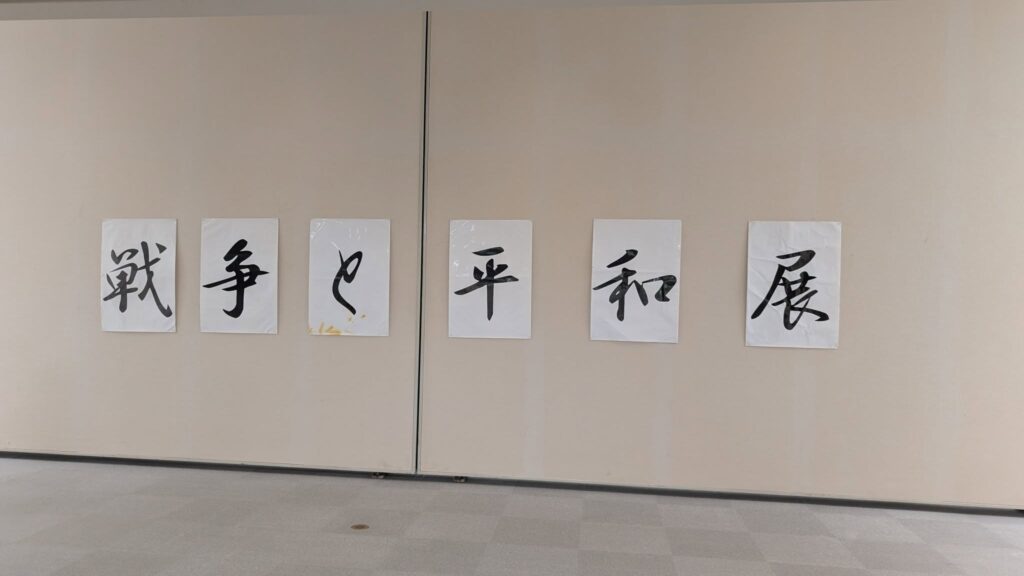 戦争と平和展